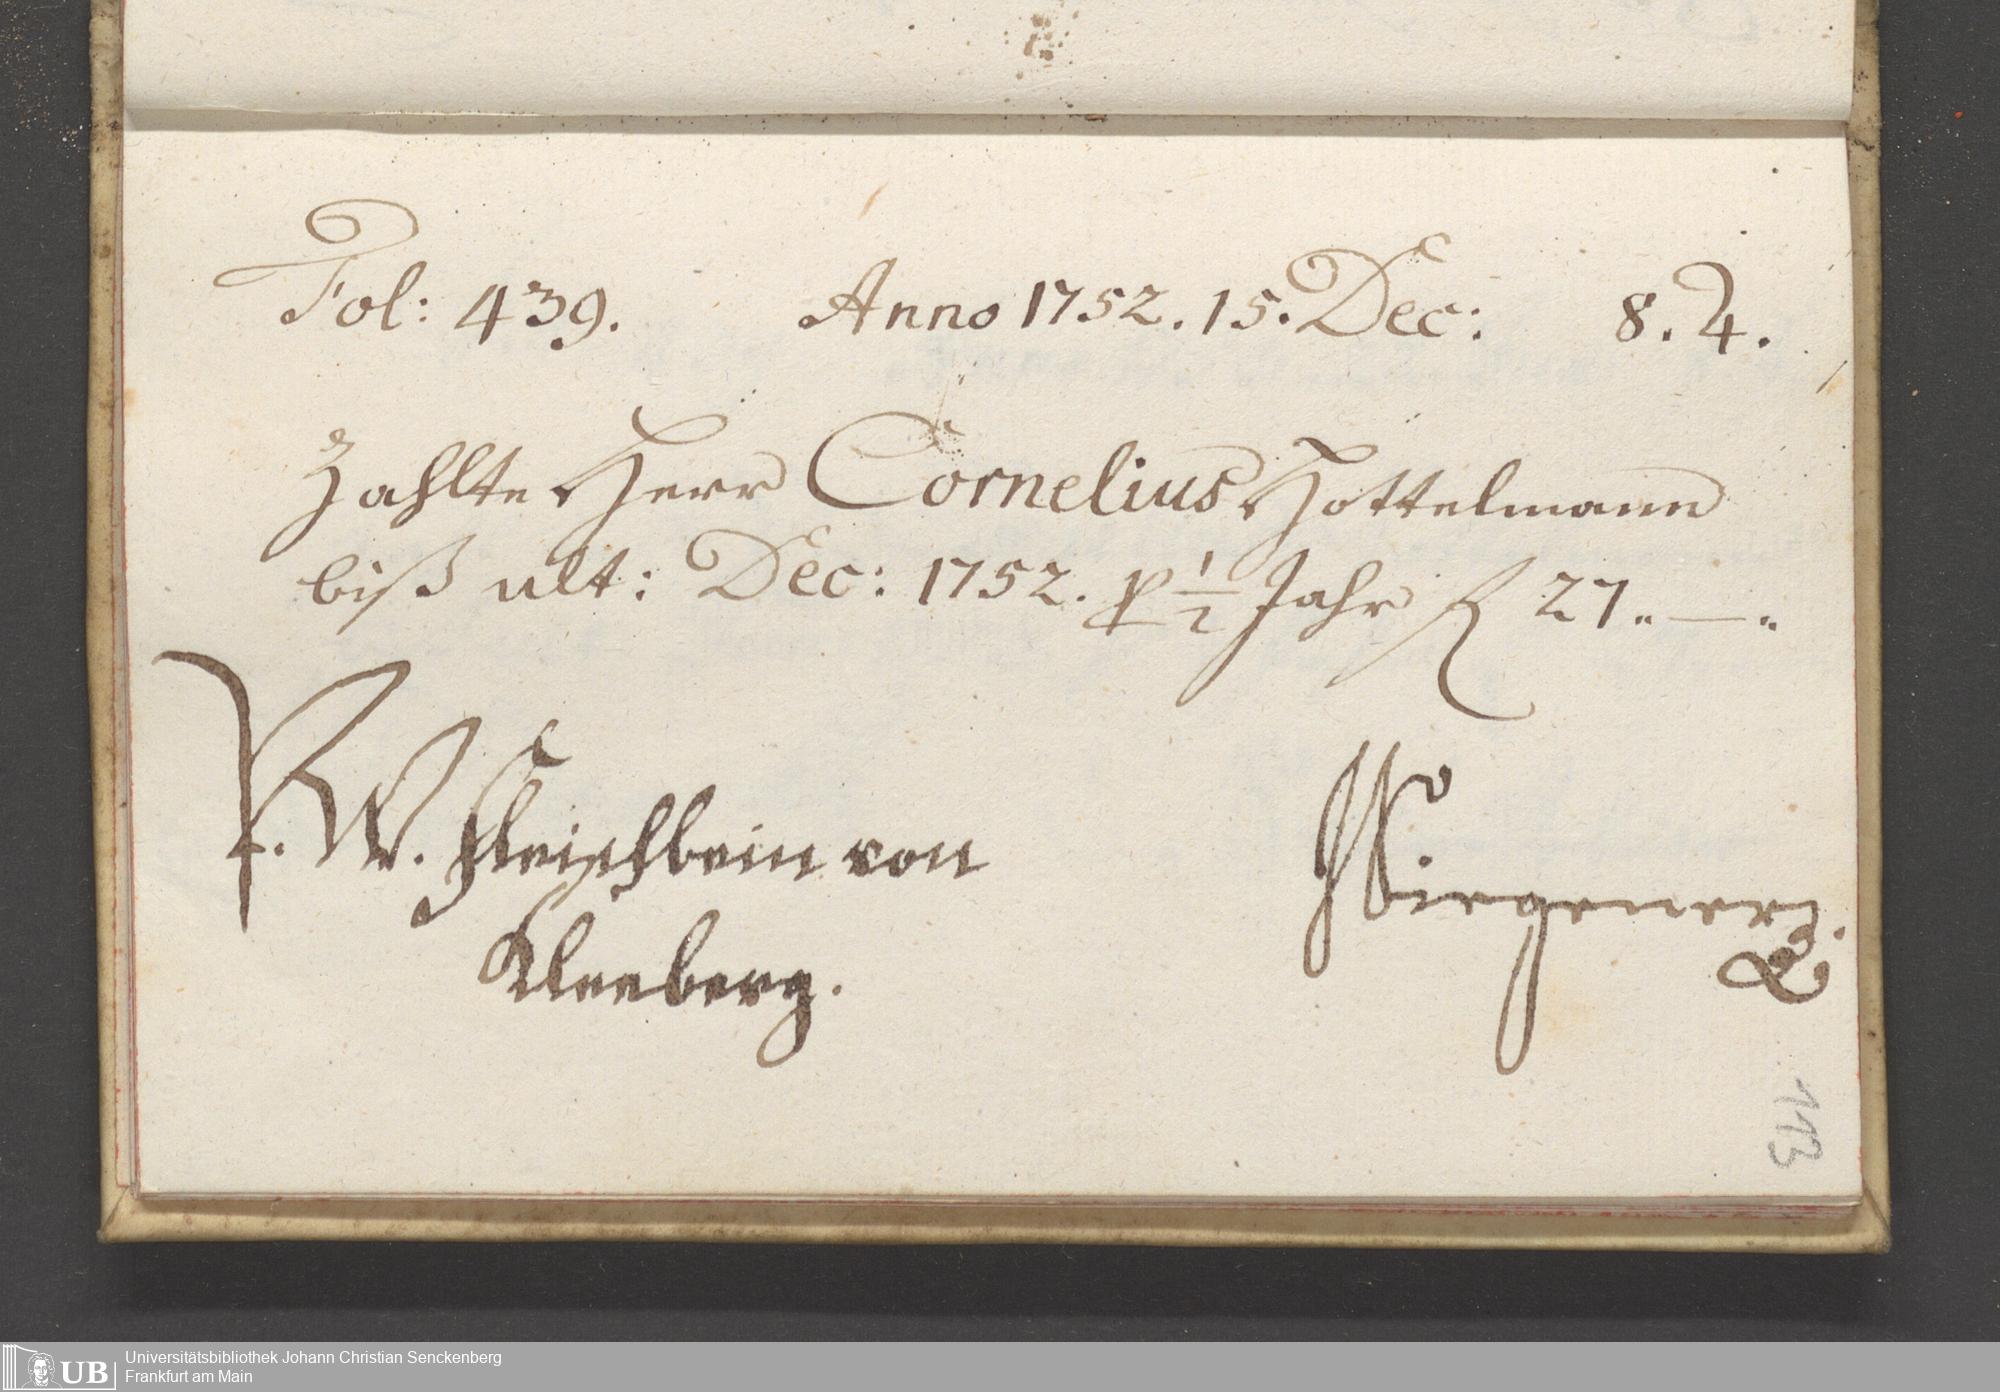 Fol: 439. Anno 1752. 15. Dec: 8. 4.
Zahlte Herr Cornelius Hottelmann
biß ult: Dec: 1752. p 1/2 Jahr R 27.. — ..
P. W. Fleischbein von
Kleeberg.
113
UB
Universitätsbibliothek Johann Christian Senckenberg
Frankfurt am Main